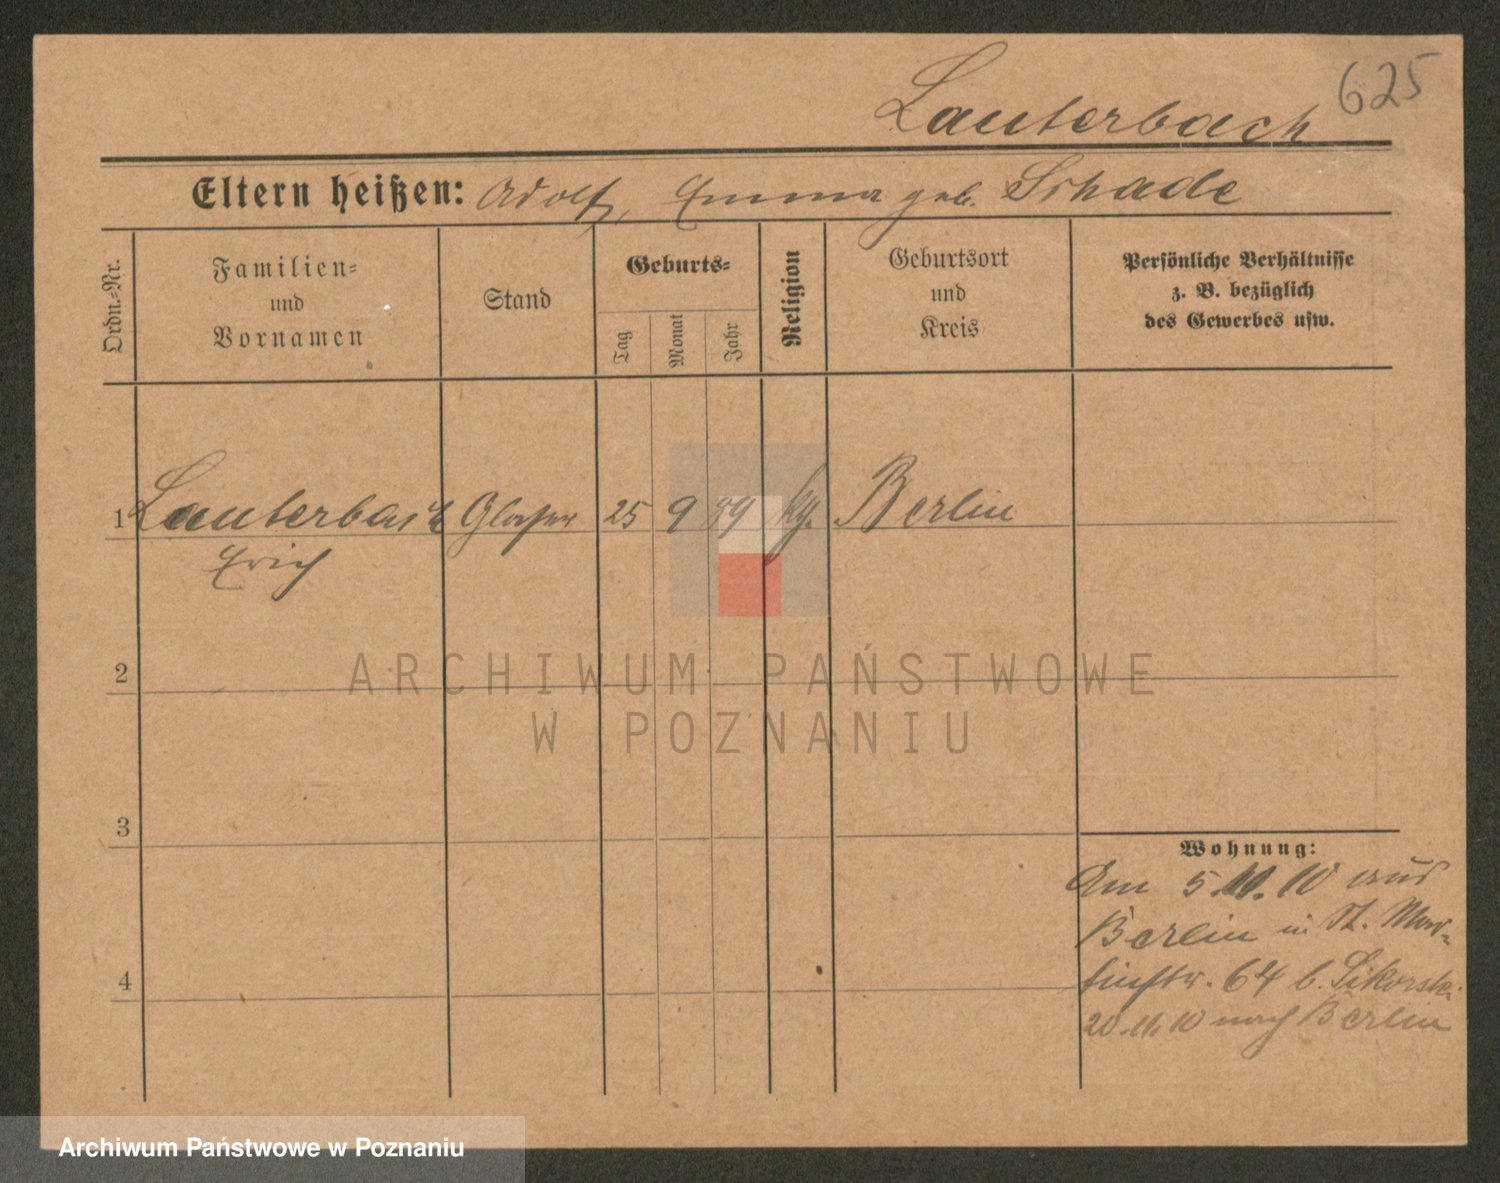 625
Lauterbach
Eltern heißen: Adolf, Emma geb. Schade
Ordn.-Nr.
Familien-
und
Vornamen
Stand
Geburts-
Tag
Monat
Jahr
Religion
Geburtsort
und
Kreis
Persönliche Verhältnisse
z. B. bezüglich
des Gewerbes usw.
1 Lauterbach Glaser 25 9 89 Berlin
Erich
2
3
4
Wohnung:
Am 5.11.10 aus
Berlin in St. Mar-
tinstr. 64 b. Sikorski
20.11.10 nach Berlin
ARCHIWUM PAŃSTWOWE
W POZNANIU
Archiwum Państwowe w Poznaniu